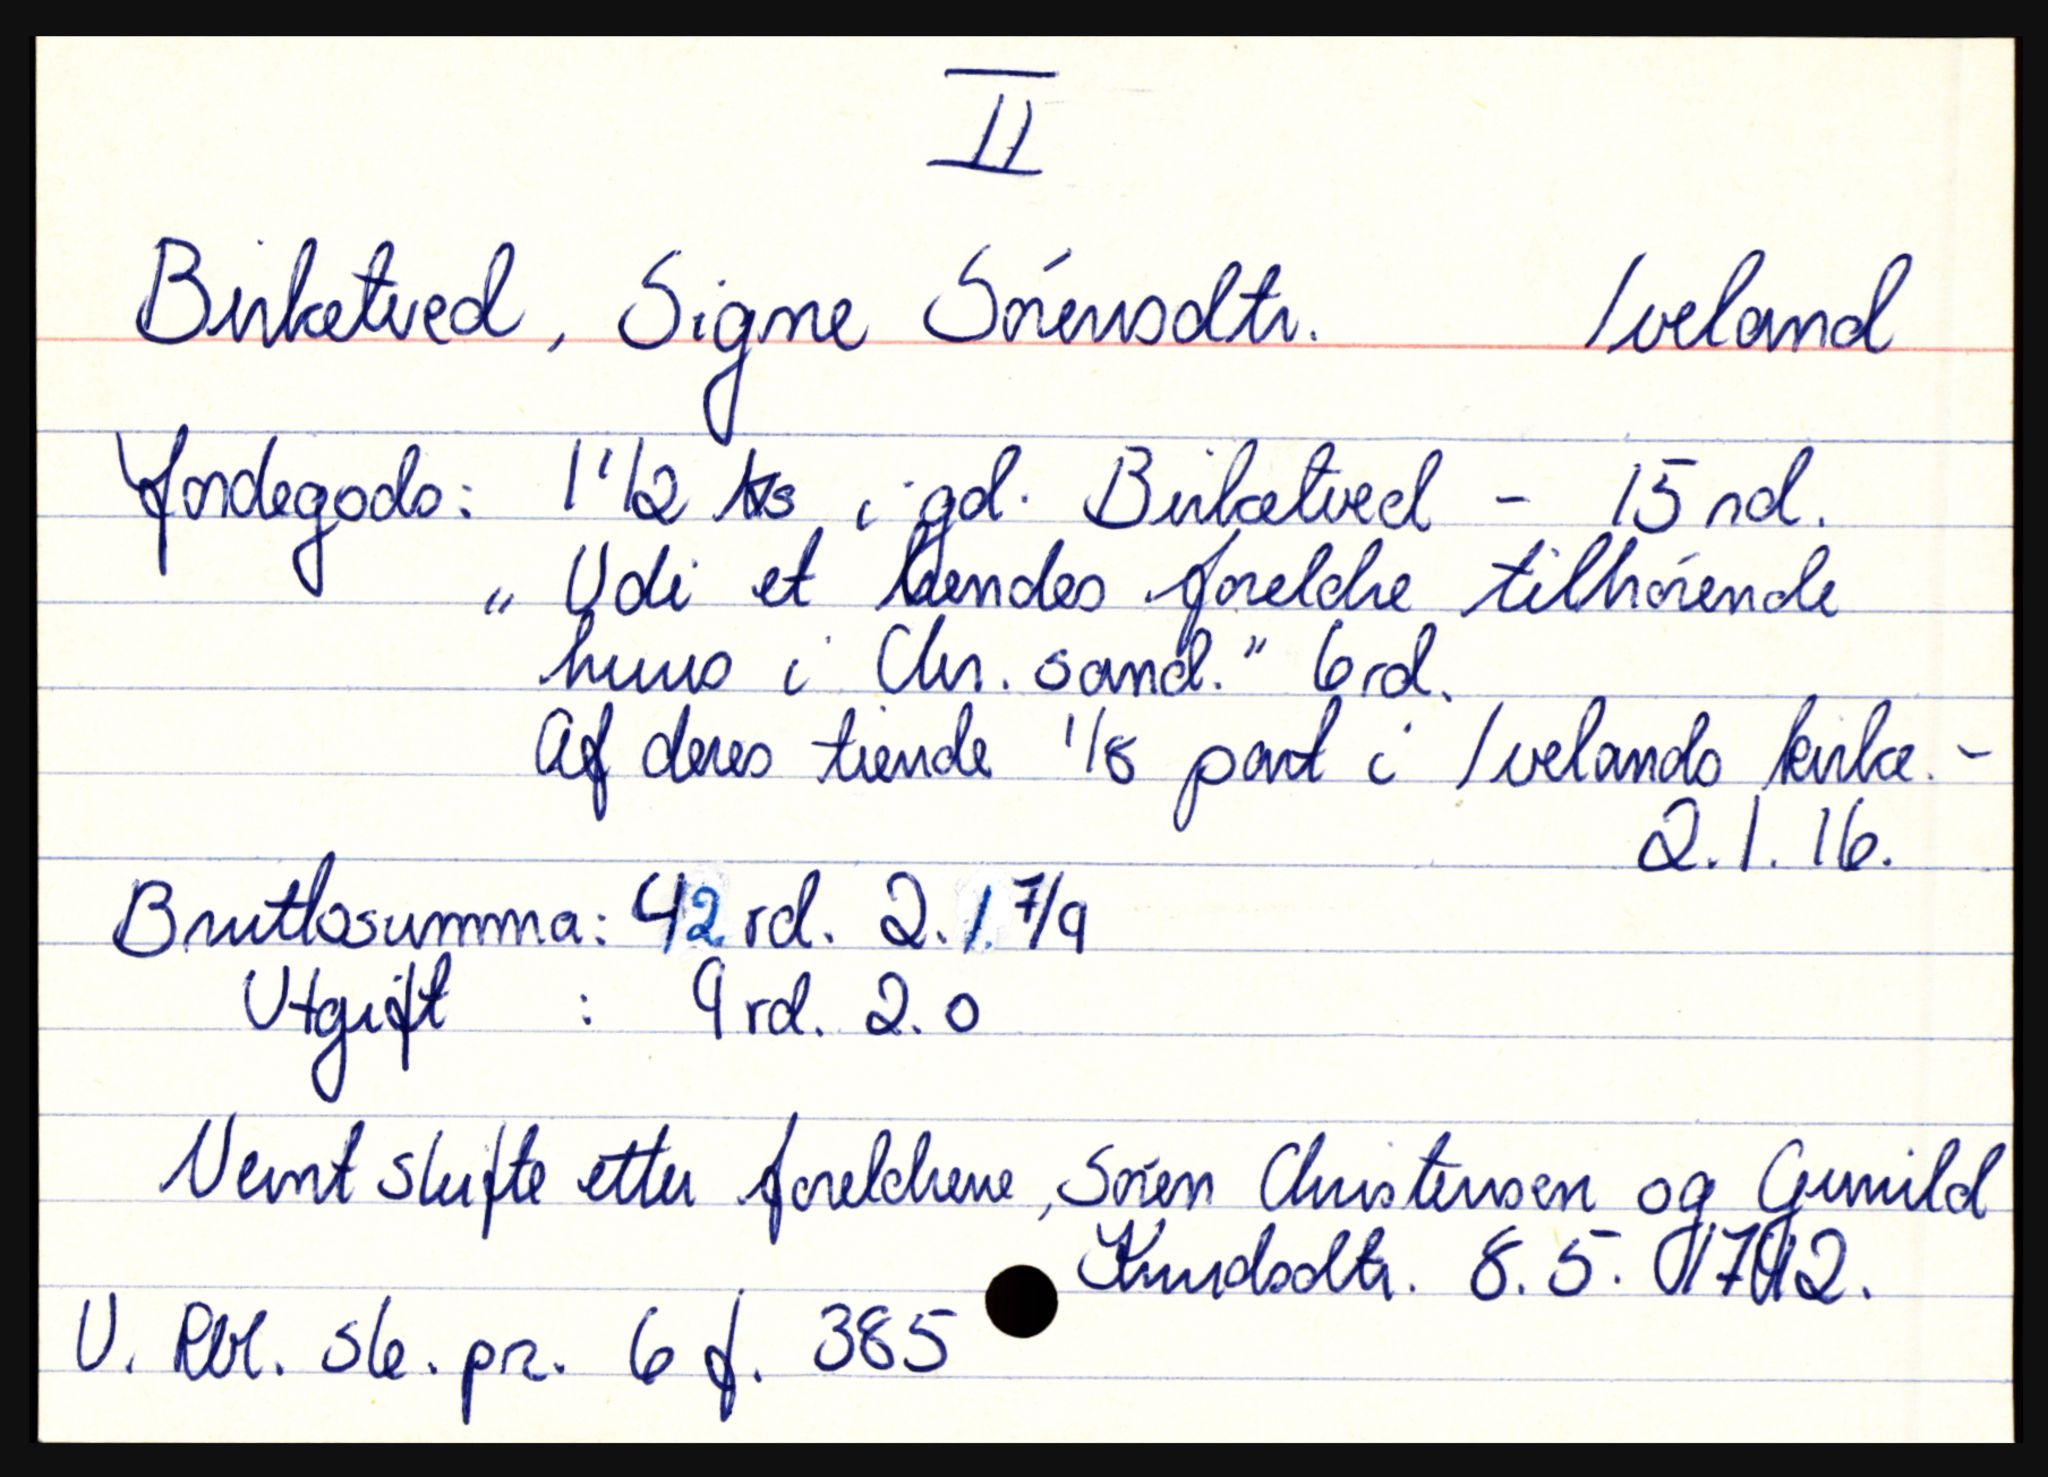 II
Birketved, Signe Sórensdtr. Iveland
Jordegods: 1 1/2 ks i gd. Birketved - 15 rd.
" Udi et hendes foreldre tilhórende
huus i Chr. sand." 6 rd.
Af deres tiende 1/8 part i Ivelands kirke. -
2.1.16.
Bruttosumma: 42 rd. 2. 1. 7/9
Utgift : 9 rd. 2. 0
Nevnt skifte etter foreldrene, Sóren Christensen og Gunild
Knudsdtr. 8. 5. 1742.
V. Rbl. sk. pr. 6 f. 385